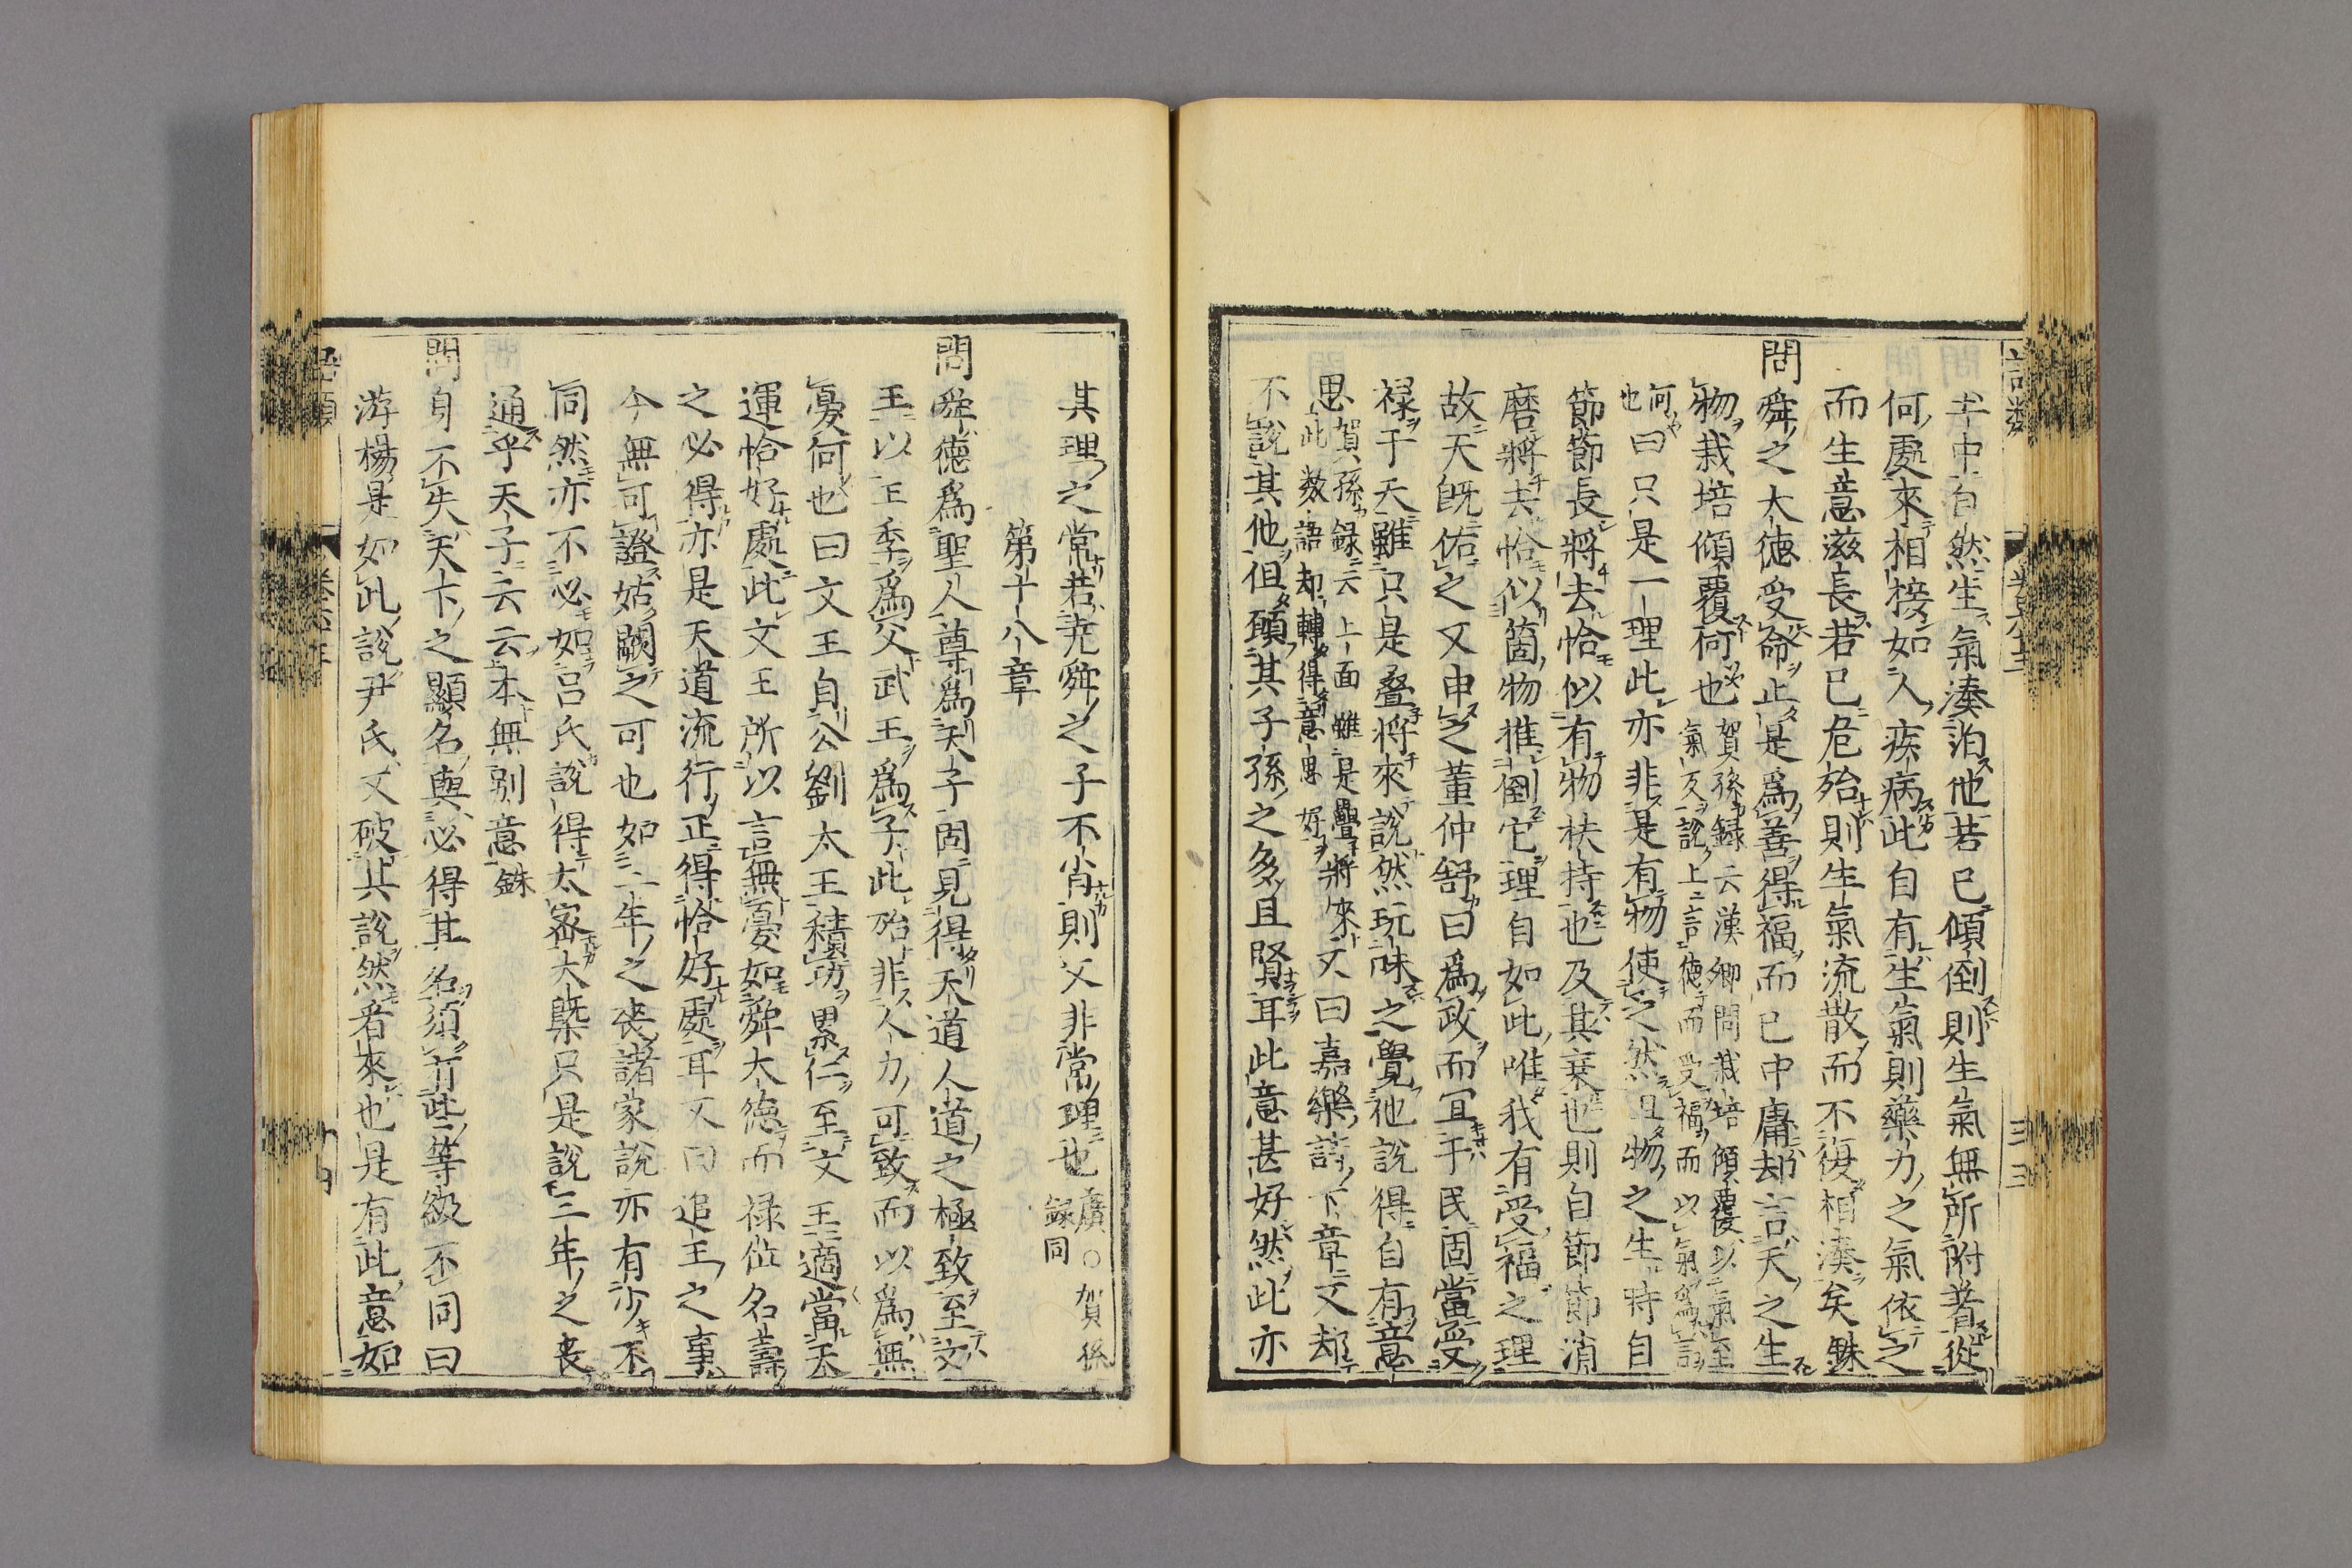 半中自然生氣湊泊他若已傾倒則生氣無所附著從
何處來相接如人疾病此自有生氣則藥力之氣依之
而生意滋長若已危殆則生氣流散而不復相湊矣銖
問舜之大德受命止是爲善得福而已中庸却言天之生
物栽培傾覆何也賀孫録云漢卿問栽培傾覆以氣至
氣反說上言德而受福而以氣爲言
何也曰只是一理此亦非是有物使之然但物之生時自
節節長將去恰似有物扶持也及其衰也則自節節消
磨將去恰似箇物推倒它理自如此唯我有受福之理
故天既佑之又申之董仲舒曰爲政而宜于民固當受
祿于天雖只是疊將來說然玩味之覺他說得自有意
思賀孫録云上面雖是疊將來
此數語却轉得意思好又曰嘉樂詩下章又却
不說其他但願其子孫之多且賢耳此意甚好然此亦
語類
卷六十三
其理之常若堯舜之子不肖則又非常理也廣○賀孫
録同
第十八章
問舜德爲聖人尊爲天子固見得天道人道之極致至文
王以王季爲父武王爲子此殆非人力可致而以爲無
憂何也曰文王自公劉太王積功累仁至文王適當天
運恰好處此文王所以言無憂如舜大德而祿位名壽
之必得亦是天道流行正得恰好處耳又曰追王之事
今無可證姑闕之可也如三年之喪諸家說亦有少不
同然亦不必如呂氏說得太密大槩只是說三年之喪
通乎天子云云本無別意銖
問身不失天下之顯名與必得其名須有些等級不同曰
游楊是如此說尹氏又破其說然看來也是有此意如
語類